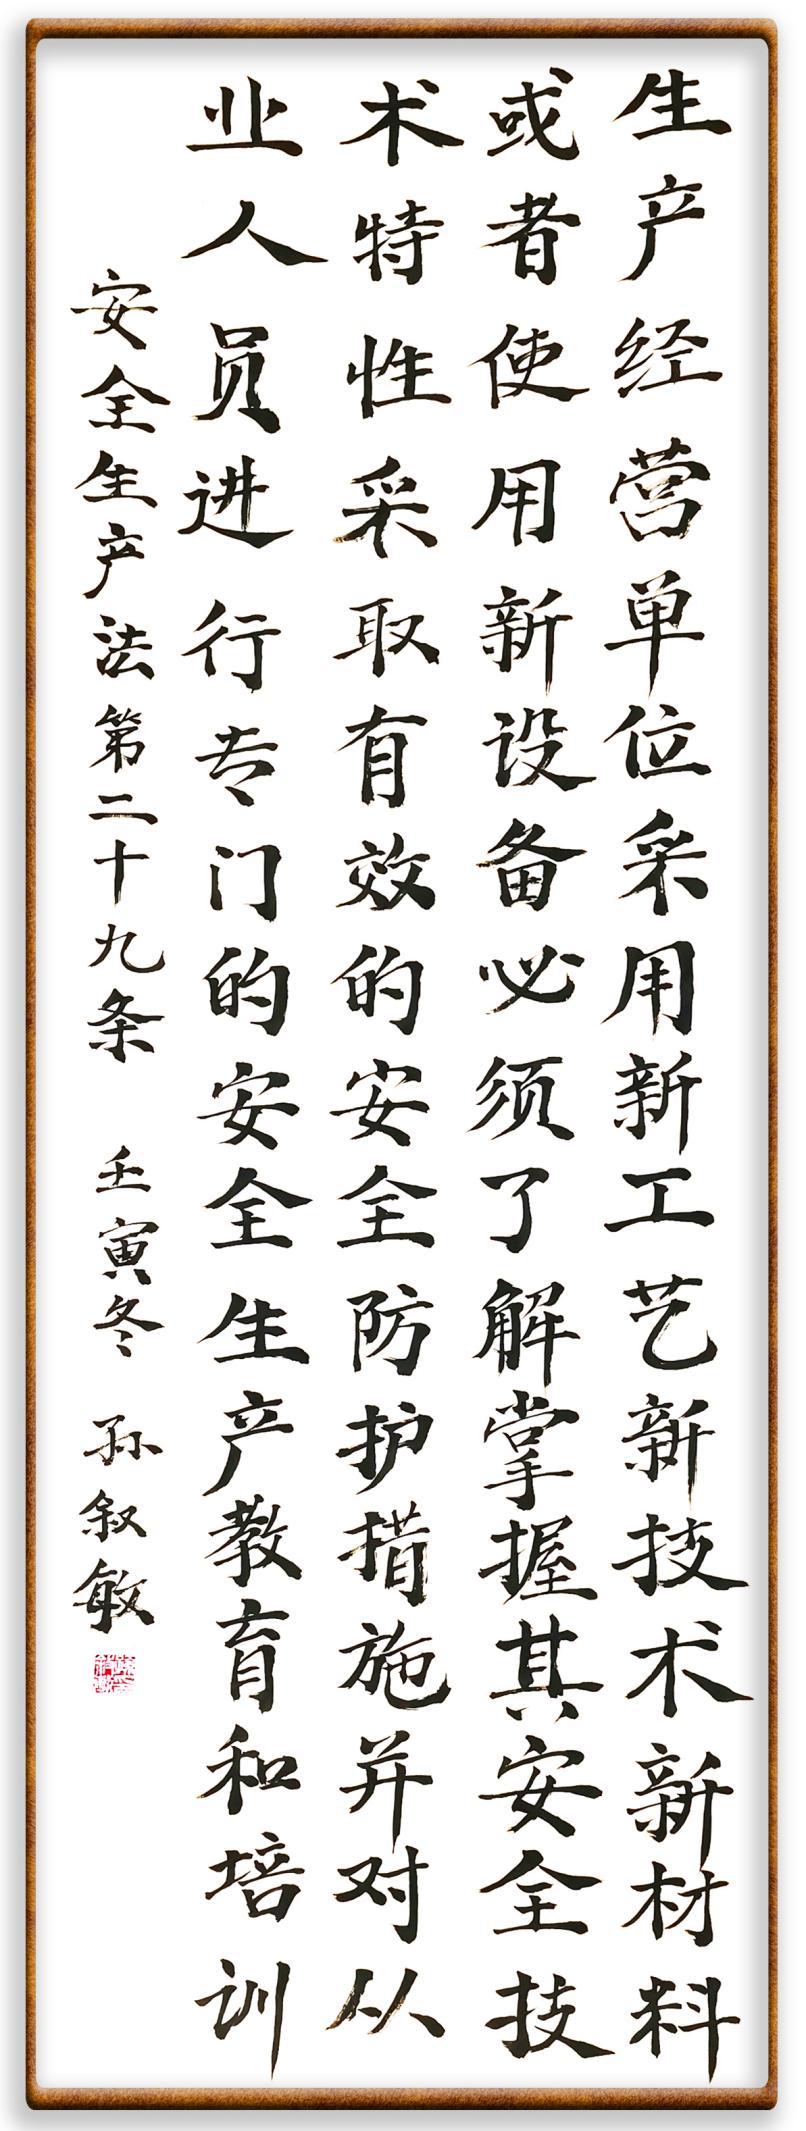 生产经营单位采用新工艺新技术新材料
或者使用新设备必须了解掌握其安全技
术特性采取有效的安全防护措施并对从
业人员进行专门的安全生产教育和培训
安全生产法第二十九条 壬寅冬 孙叙敏